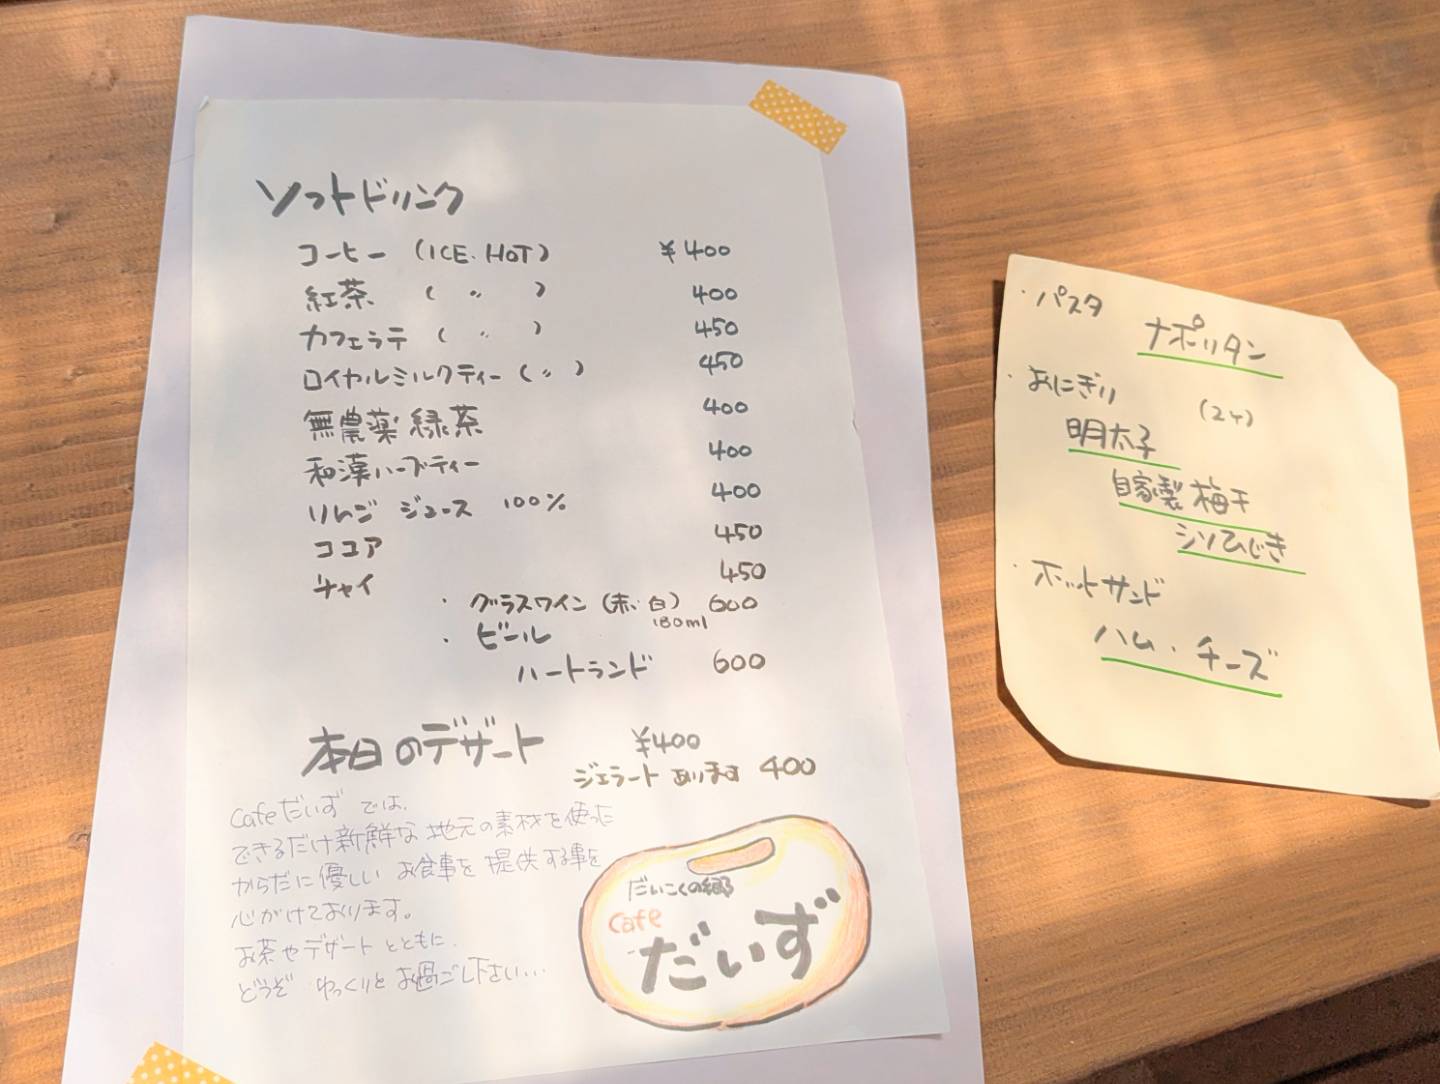 ソフトドリンク
コーヒー (ICE. HOT) ¥400
紅茶 ( 〃 ) 400
カフェラテ ( 〃 ) 450
ロイヤルミルクティー ( 〃 ) 450
無農薬 緑茶 400
和漢ハーブティー 400
りんご ジュース 100% 400
ココア 450
チャイ 450
・ グラスワイン (赤、白) 600
180ml
・ ビール
ハートランド 600
本日のデザート ¥400
ジェラート あります 400
Cafeだいず では、
できるだけ新鮮な 地元の素材を使った
からだに優しい お食事を 提供する事を
心がけております。
お茶やデザートとともに、
どうぞ ゆっくりと お過ごし下さい...
だいこくの郷
Cafe
だいず
・パスタ
ナポリタン
・おにぎり
(2ケ)
明太子
自家製 梅干
シソひじき
・ホットサンド
ハム・チーズ